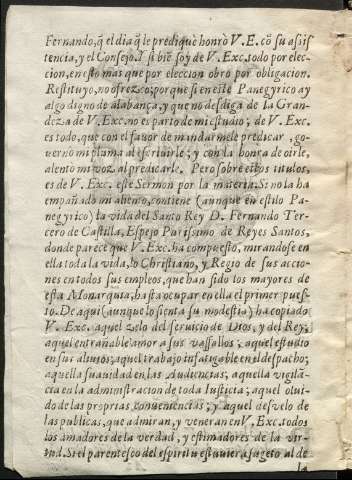 Fernando, q̃ el dia q̃ le predique honrò V. E. cõ su assis
tencia, y el Consejo. Y si biẽ soy de V. Exc. todo por elec-
cion, en esto mas que por eleccion obrò por obligacion.
Restituyo, no ofrezco; porque si en este Panegyrico ay
algo digno de alabança, y que no desdiga de la Gran-
deza de V. Exc. no es parto de mi estudio; de V. Exc.
es todo, que con el fauor de mandarmele predicar, go-
uernò mi pluma al escriuirle; y con la honra de oirle,
alentò mi voz al predicarle. Pero sobre estos titulos,
es de V. Exc. este Sermon por la materia. Si no la ha
empañado mi aliento, contiene (aunque en estilo Pa-
negyrico) la vida del Santo Rey D. Fernando Ter-
cero de Castilla, Espejo Purissimo de Reyes Santos,
donde parece que V. Exc. ha compuesto, mirandose en
ella toda la vida, lo Christiano, y Regio de sus accio-
nes en todos sus empleos, que han sido los mayores de
esta Monarquia, hasta ocupar en ella el primer pues-
to. De aqui (aunque lo sienta su modestia) ha copiado
V. Exc. aquel zelo del seruicio de Dios, y del Rey;
aquel entrañable amor a sus vassallos; aquel estudio
en sus aliuios; aquel trabajo infatigable en el despacho;
aquella suauidad en las Audiencias; aquella vigilã-
cia en la administracion de toda Iusticia; aquel olui-
do de las propias conueniencias; y aquel desvelo de
las publicas, que admiran, y veneran en V. Exc. todos
los amadores de la verdad, y estimadores de la vir-
tud. Si el parentesco del espiritu estuuiera sugeto al de
la